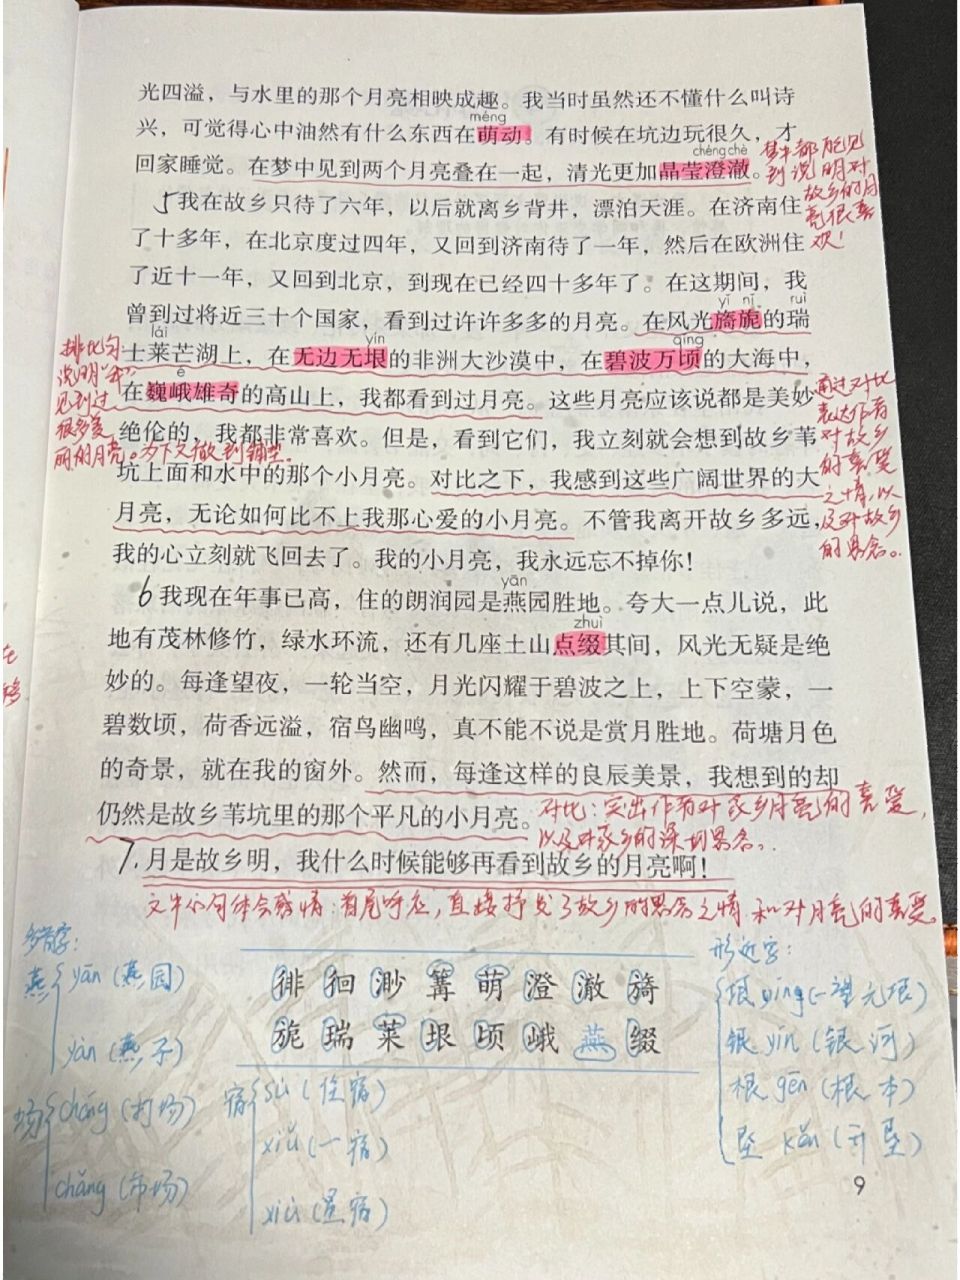 光四溢，与水里的那个月亮相映成趣。我当时虽然还不懂什么叫诗
méng
兴，可觉得心中油然有什么东西在萌动。有时候在坑边玩很久，才
chéng chè
回家睡觉。在梦中见到两个月亮叠在一起，清光更加晶莹澄澈。
梦中都能见
到说明对
故乡的月
亮很喜
欢！
5我在故乡只待了六年，以后就离乡背井，漂泊天涯。在济南住
了十多年，在北京度过四年，又回到济南待了一年，然后在欧洲住
了近十一年，又回到北京，到现在已经四十多年了。在这期间，我
yǐ nǐ ruì
曾到过将近三十个国家，看到过许许多多的月亮。在风光旖旎的瑞
lái yín qǐng
士莱芒湖上，在无边无垠的非洲大沙漠中，在碧波万顷的大海中，
é
在巍峨雄奇的高山上，我都看到过月亮。这些月亮应该说都是美妙
绝伦的，我都非常喜欢。但是，看到它们，我立刻就会想到故乡苇
坑上面和水中的那个小月亮。对比之下，我感到这些广阔世界的大
月亮，无论如何比不上我那心爱的小月亮。不管我离开故乡多远，
我的心立刻就飞回去了。我的小月亮，我永远忘不掉你！
排比句：
说明“我”
见到过
很多美
丽的月亮。为下文做到铺垫。
通过对比
表达作者
对故乡
的喜爱
之情，以
及对故乡
的思念。
yān
6我现在年事已高，住的朗润园是燕园胜地。夸大一点儿说，此
zhuì
地有茂林修竹，绿水环流，还有几座土山点缀其间，风光无疑是绝
妙的。每逢望夜，一轮当空，月光闪耀于碧波之上，上下空蒙，一
碧数顷，荷香远溢，宿鸟幽鸣，真不能不说是赏月胜地。荷塘月色
的奇景，就在我的窗外。然而，每逢这样的良辰美景，我想到的却
仍然是故乡苇坑里的那个平凡的小月亮。
对比：突出作者对家乡月亮的喜爱，
以及对家乡的深切思念。
7.月是故乡明，我什么时候能够再看到故乡的月亮啊！
文中心句体会感情：首尾呼应，直接抒发了故乡的思念之情和对月亮的喜爱。
在
多音字：
燕 yān（燕园）
yàn（燕子）
场 cháng（打场）
chǎng（市场）
徘徊渺篝萌澄澈旖
旎瑞莱垠顷峨燕缀
宿 sù（住宿）
xiǔ（一宿）
xiù（星宿）
形近字：
垠 yíng（一望无垠）
银 yín（银河）
根 gēn（根本）
垦 kěn（开垦）
9